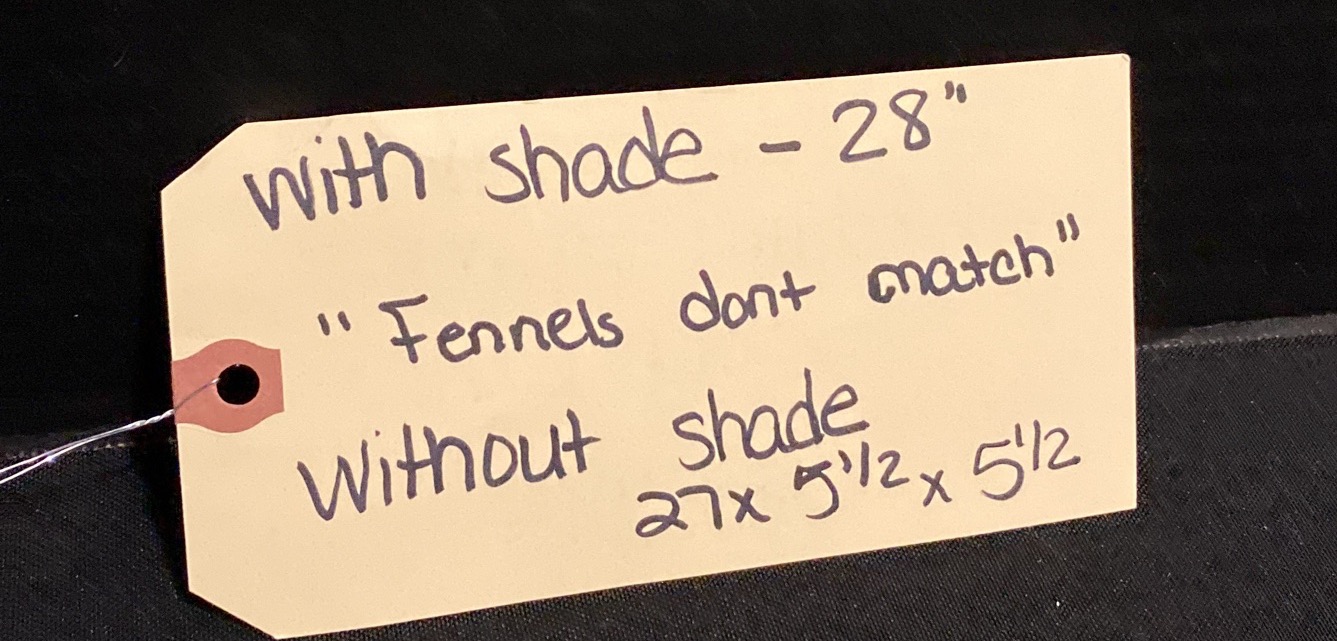 With shade - 28"
"Fennels dont match"
Without shade
27 x 5 1/2 x 5 1/2